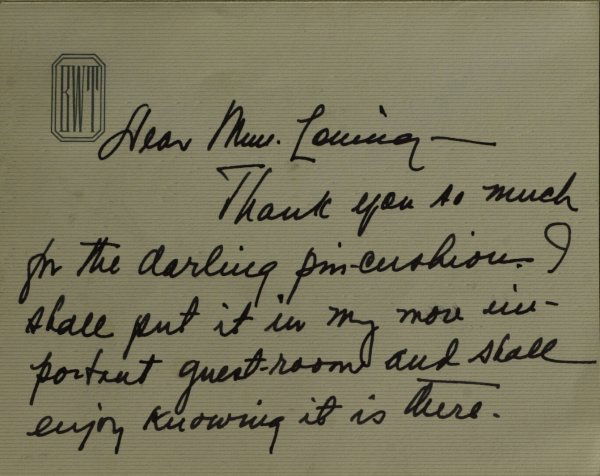 KWT
Dear Mrs. Loring —
Thank you so much
for the darling pin-cushion. I
shall put it in my more im-
portant guest-room and shall
enjoy knowing it is there.